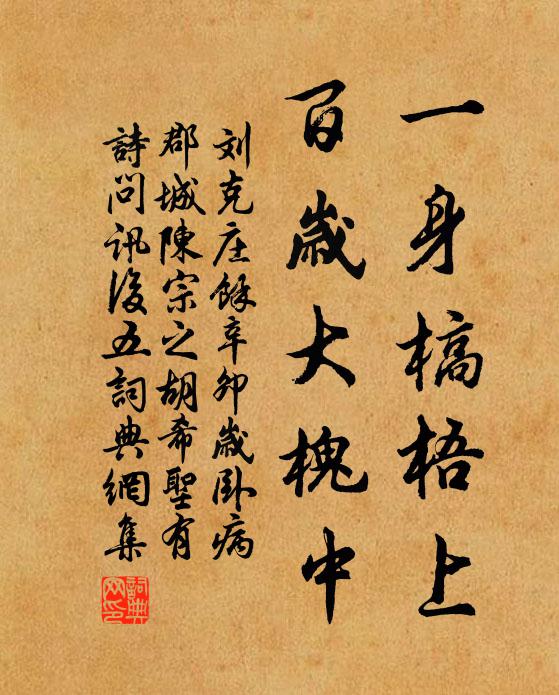 一身槁梧上
百歲大槐中
刘克庄餘辛卯歲卧病
郡城陳宗之胡希聖有
詩問訊後五詞典網集
詞典網印